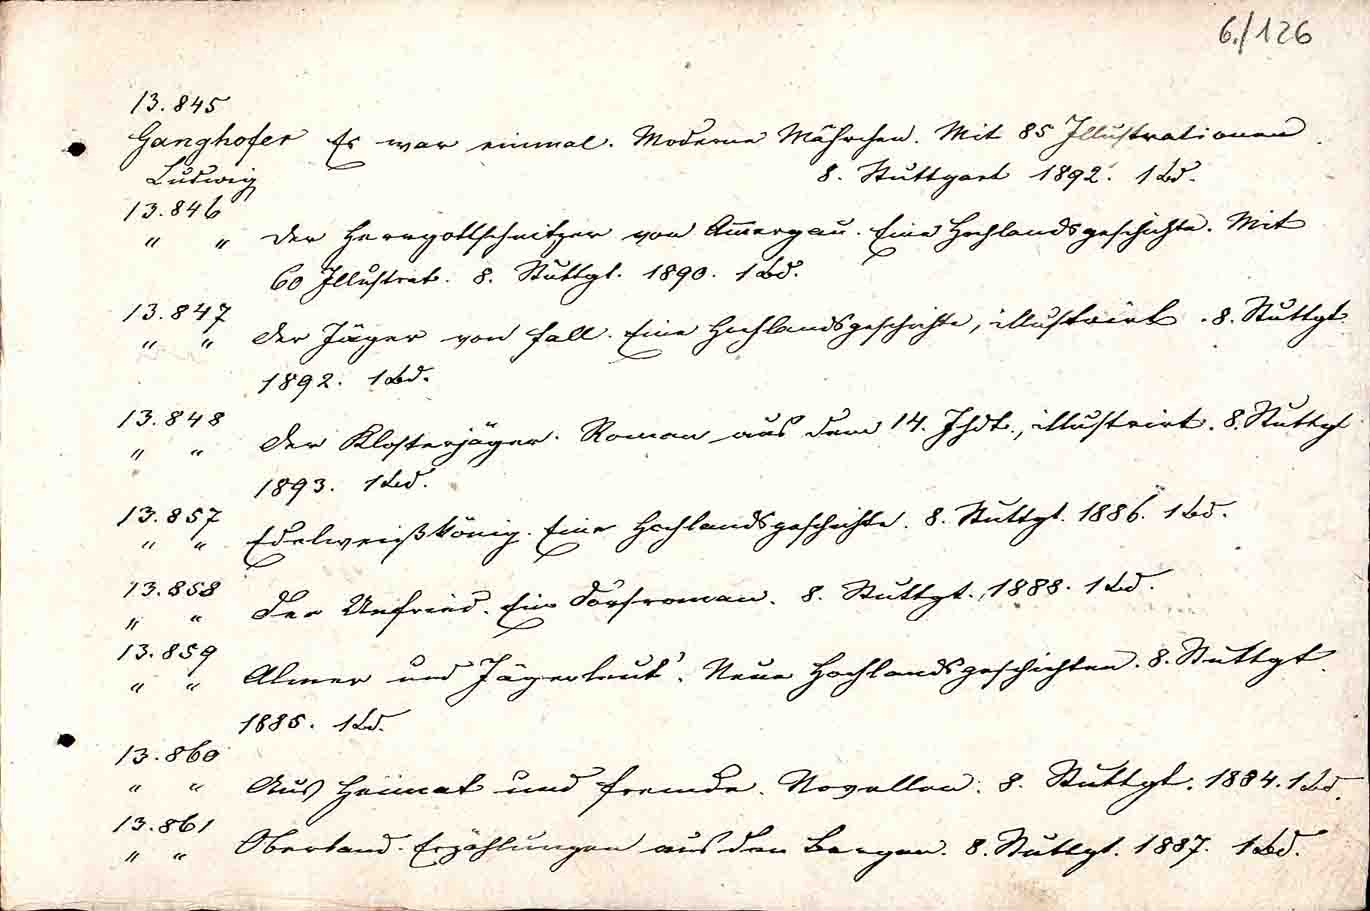 6./126
13.845
Ganghofer Es war einmal. Moderne Mährchen. Mit 85 Illustrationen.
Ludwig 8. Stuttgart 1892. 1 Bd.
13.846
" " Der Herrgottschnitzer von Am̅ergau. Eine Hochlandsgeschichte. Mit
60 Illustrat. 8. Stuttgt. 1890. 1 Bd.
13.847
" " Der Jäger von Fall. Eine Hochlandsgeschichte, illustrirt. 8. Stuttgt.
1892. 1 Bd.
13.848
" " Der Klosterjäger. Roman aus dem 14. Jhdt., illustrirt. 8. Stuttgt
1893. 1 Bd.
13.857
" " Edelweißkönig. Eine Hochlandsgeschichte. 8. Stuttgt. 1886. 1 Bd.
13.858
" " Der Unfried. Ein Dorfroman. 8. Stuttgt. 1888. 1 Bd.
13.859
" " Almer und Jägerleut'. Neue Hochlandsgeschichten. 8. Stuttgt.
1885. 1 Bd.
13.860
" " Aus Heimat und Fremde. Novellen. 8. Stuttgt. 1884. 1 Bd.
13.861
" " Oberland. Erzählungen aus den Bergen. 8. Stuttgt. 1887. 1 Bd.